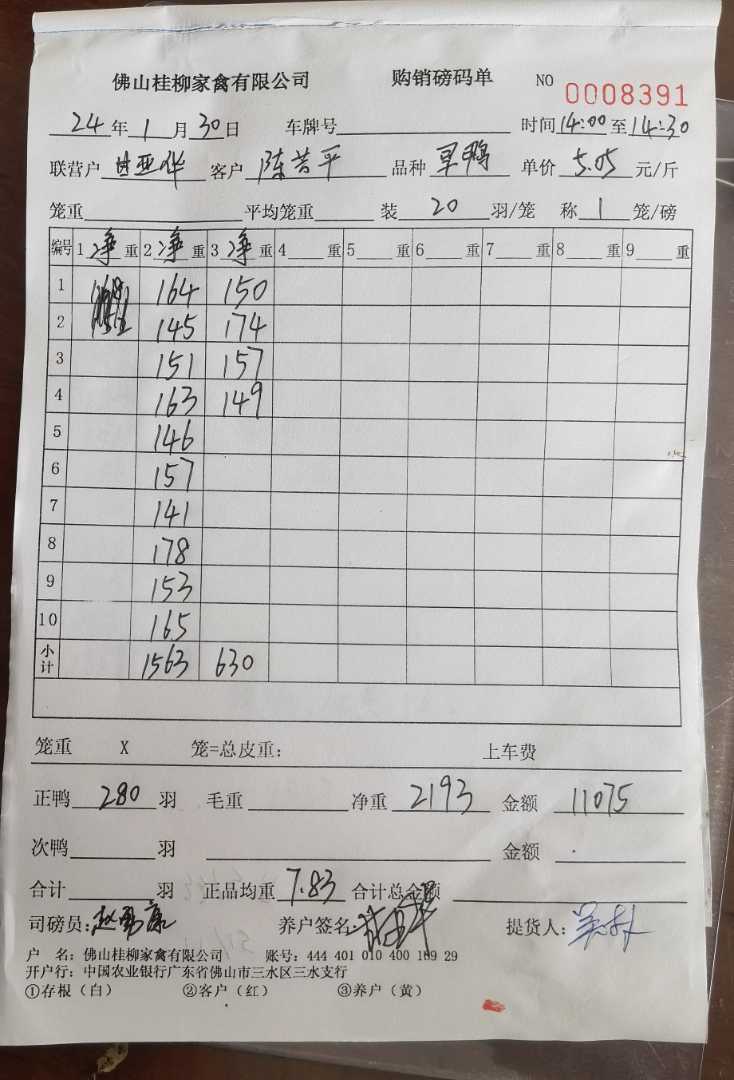 佛山桂柳家禽有限公司 购销磅码单 NO 0008391
24年1月30日 车牌号 时间14:00至14:30
联营户甘亚晔 客户陈苦平 品种旱鸭 单价5.05元/斤
笼重 平均笼重 装20羽/笼 称1笼/磅
编号 1净重 2净重 3净重 4重 5重 6重 7重 8重 9重
1 164 150
2 145 174
3 151 157
4 163 149
5 146
6 157
7 141
8 178
9 153
10 165
小计 1563 630
笼重 X 笼=总皮重: 上车费
正鸭280羽 毛重 净重2193 金额11075
次鸭 羽 金额
合计 羽 正品均重7.83 合计总金额
司磅员: 养户签名 提货人:
户 名: 佛山桂柳家禽有限公司 账号: 444 401 010 400 189 29
开户行: 中国农业银行广东省佛山市三水区三水支行
①存根(白) ②客户(红) ③养户(黄)